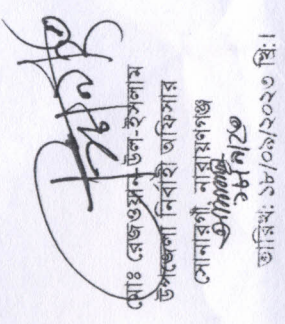 মোঃ রেজওয়ান-উল-ইসলাম
উপজেলা নির্বাহী অফিসার
সোনারগাঁ, নারায়ণগঞ্জ
তারিখ: ১৮/০৯/২০২৩ খ্রি:।